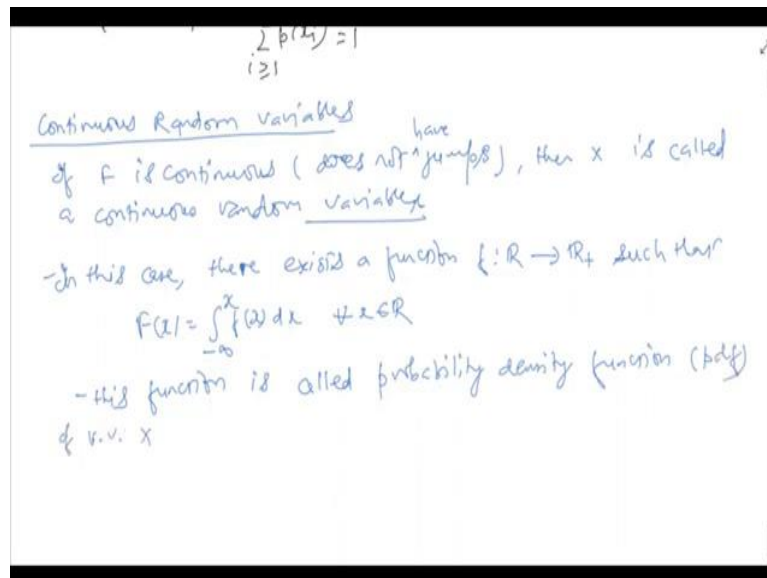 Σ p(xi) = 1
i≥1
Continuous Random variables
If F is continuous ( does not have jumps), then X is called
a continuous random variable
- In this case, there exists a function f : R → R+ such that
F(x) = ∫_{-∞}^{x} f(x) dx ∀ x ∈ R
- this function is called probability density function (pdf)
of r.v. X